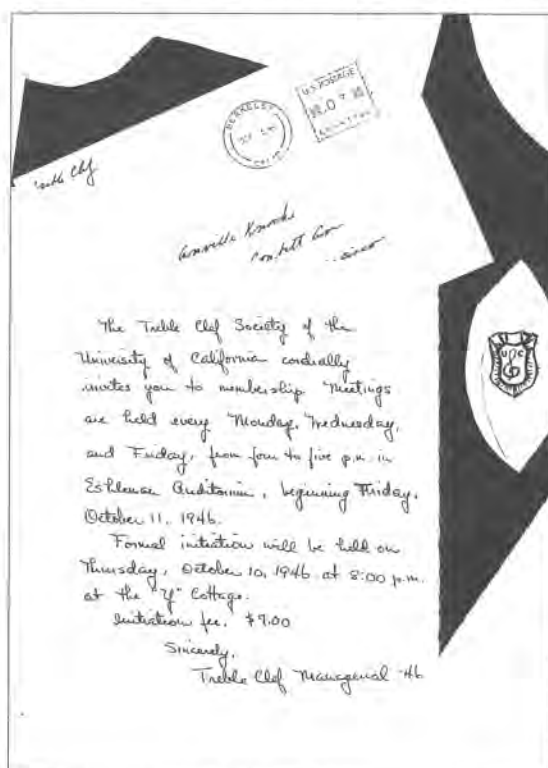 U.S. POSTAGE
BERKELEY
Treble Clef
The Treble Clef Society of the
University of California cordially
invites you to membership. Meetings
are held every Monday, Wednesday,
and Friday, from four to five p.m. in
Eshleman Auditorium, beginning Friday,
October 11, 1946.
Formal initiation will be held on
Thursday, October 10, 1946 at 8:00 p.m.
at the "Y" Cottage.
Initiation fee. $9.00
Sincerely,
Treble Clef Managerial '46